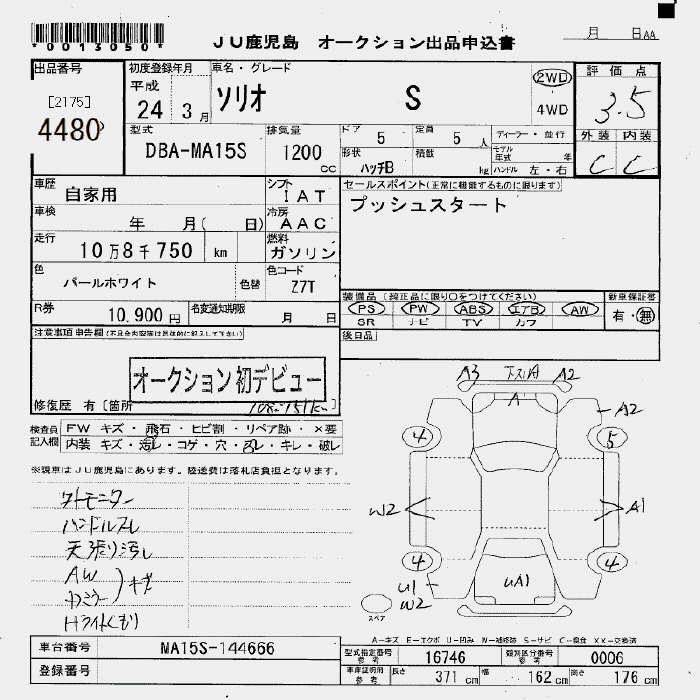 *0013050*
JU鹿児島 オークション出品申込書
月 日AA
出品番号
[2175]
4480
初度登録年月
平成
24 3月
車名・グレード
ソリオ S
2WD
4WD
評価点
3.5
外装 内装
C C
型式
DBA-MA15S
排気量
1200
cc
ドア
5
定員
5人
ディーラー・並行
形状
ハッチB
積載
kg
モデル年式 年
ハンドル 左・右
車歴
自家用
シフト
IAT
車検
年 月( 日)
冷房
AAC
走行
10万8千750 km
燃料
ガソリン
色
パールホワイト
色替
色コード
Z7T
R券
10,900円
名変通知期限
月 日
セールスポイント(正常に機能するものに限ります)
プッシュスタート
装備品(純正品に限り〇をつけてください)
PS PW ABS エアB AW
SR ナビ TV カワ
新車保証書
有・無
後日品
注意事項申告欄(不具合内容等は具体的に記入して下さい)
オークション初デビュー
修復歴 有[箇所 ]
検査員記入欄
FW キズ・飛石・ヒビ割・リペア跡・×要
内装 キズ・汚レ・コゲ・穴・スレ・キレ・破レ
※現車はJU鹿児島にあります。陸送費は落札店負担となります。
ハンドルスレ
天張り汚レ
AW
キズ
Hライトくもり
A3 A2
A
A2
4 5
W2 A1
4 4
U1
W2
UA1
スペア
A-キズ E-エクボ U-凹み W-補修跡 S-サビ C-腐食 XX-交換済
車台番号
MA15S-144666
登録番号
型式指定番号
参考
16746
類別区分番号
参考
0006
車庫証明用
参考
長さ 371cm 幅 162cm 高さ 176cm